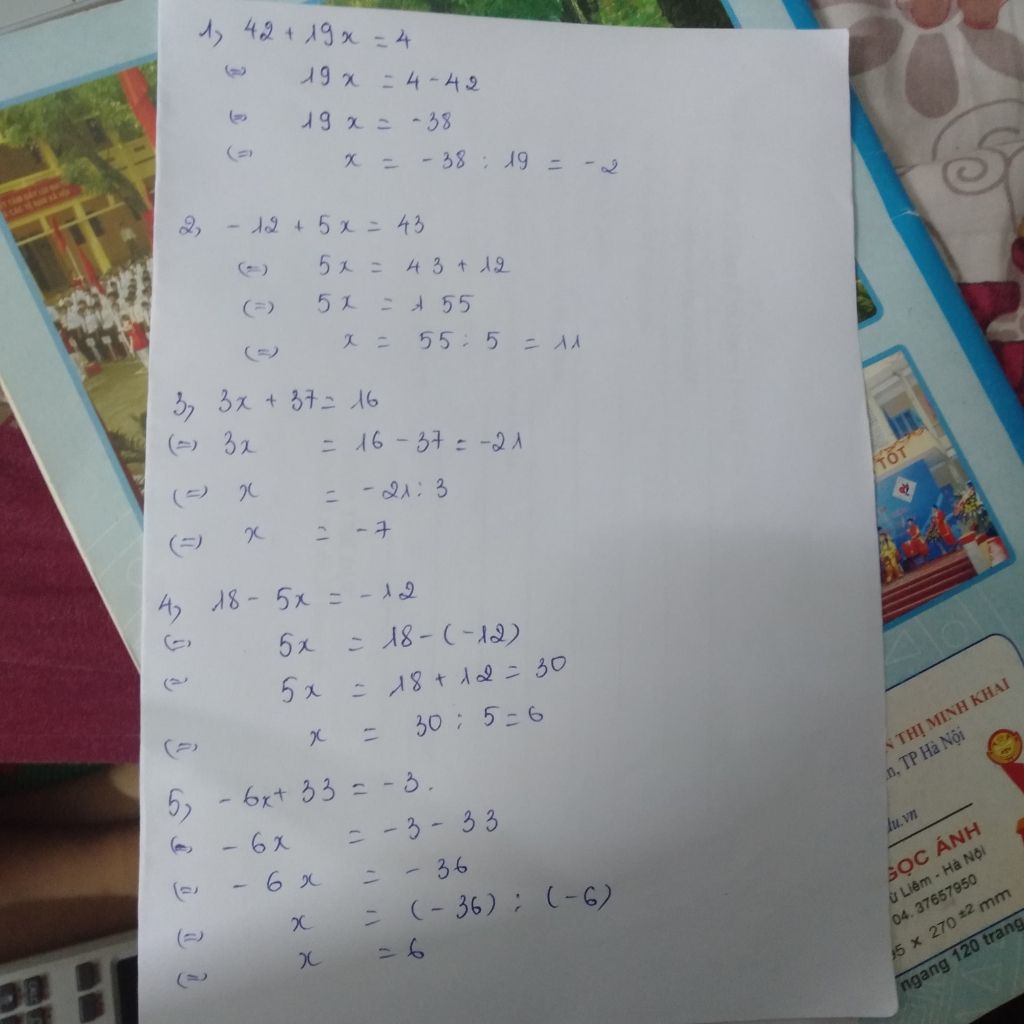 1, 42 + 19x = 4
(=) 19x = 4 - 42
(=) 19x = -38
(=) x = -38 : 19 = -2
2, -12 + 5x = 43
(=) 5x = 43 + 12
(=) 5x = 1 55
(=) x = 55 : 5 = 11
3, 3x + 37 = 16
(=) 3x = 16 - 37 = -21
(=) x = -21 : 3
(=) x = -7
4, 18 - 5x = -12
(=) 5x = 18 - (-12)
(=) 5x = 18 + 12 = 30
(=) x = 30 : 5 = 6
5, -6x + 33 = -3.
(=) -6x = -3 - 33
(=) -6x = -36
(=) x = (-36) : (-6)
(=) x = 6
TỐT
THỊ MINH KHAI
TP Hà Nội
du.vn
GỌC ÁNH
Liêm - Hà Nội
04. 37657950
x 270 ±2 mm
ngang 120 trang